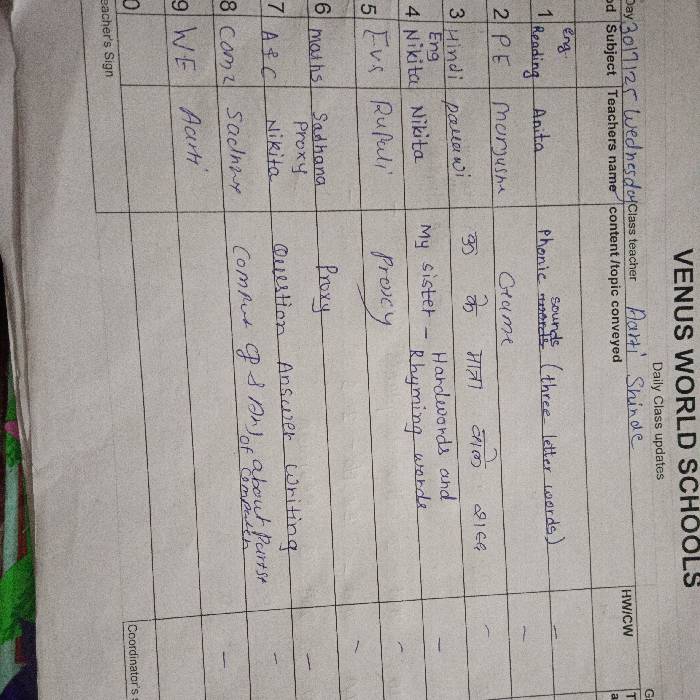 VENUS WORLD SCHOOLS
Daily Class updates
Day 30/7/25 Wednesday Class teacher Aarti Shinde
od Subject Teachers name content/topic conveyed HW/CW
1 Eng. Reading Anita Phonic sounds (three letter words) -
2 PE Manjusha Game -
3 Hindi Pallavi मात्रा वाले शब्द -
4 Eng Nikita Nikita My sister - Hardwords and Rhyming words -
5 EVS Rupali Proxy -
6 maths Sadhana Proxy Proxy -
7 A & C Nikita Question Answer writing -
8 Comp Sadhna about Parts of Computer -
9 WE Aarti
0
eacher's Sign Coordinator's